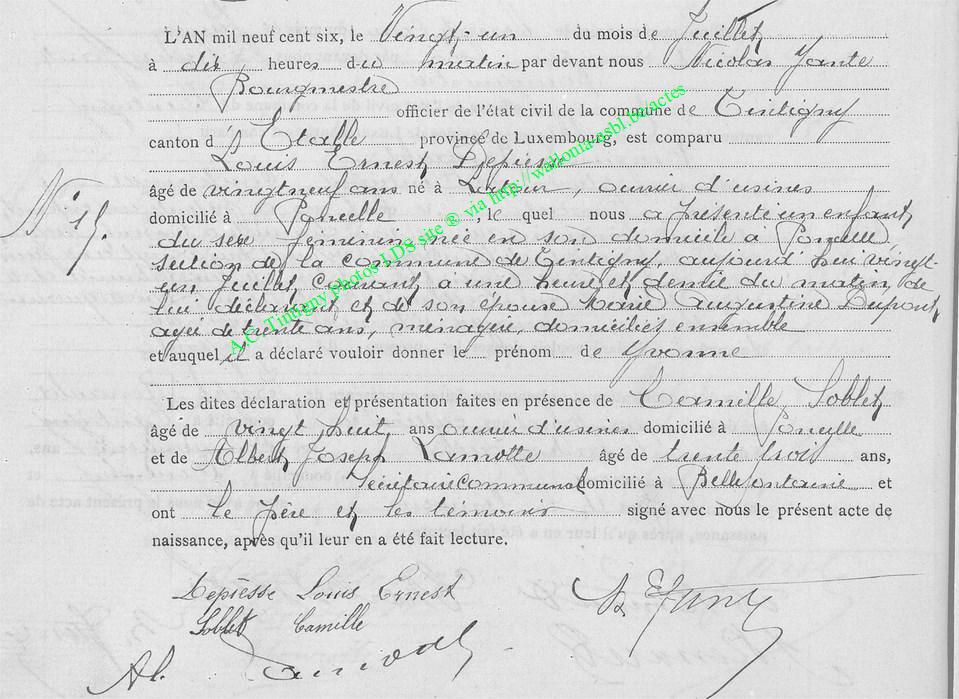 L'AN mil neuf cent six, le Vingt-un du mois de Juillet
à dix heures du matin par devant nous Nicolas
Bourgmestre
officier de l'état civil de la commune de Tintigny
canton d'Etalle province de Luxembourg, est comparu
Louis Ernest Depiesse
âgé de vingt neuf ans né à, ouvrier d'usines
domicilié à Poncelle le quel nous a présenté un enfant
du sexe feminin, née en son domicile à Poncelle,
section de la commune de Tintigny, aujourd'hui vingt-
un Juillet courant à une heure et demie du matin, de
lui déclarant et de son épouse Marie Augustine Dupont,
agée de trente ans, ménagère, domiciliés ensemble
et auquel il a déclaré vouloir donner le prénom de Yvonne
Les dites déclaration et présentation faites en présence de Camille Soblet
âgé de vingt huit ans ouvrier d'usines domicilié à Poncelle
et de Albert Joseph Lamotte âgé de trente trois ans,
secrétaire communal domicilié à Bellefontaine et
ont le père et les témoins signé avec nous le présent acte de
naissance, après qu'il leur en a été fait lecture.
Depiesse Louis Ernest
Soblet Camille
Al.
A.C. Tintigny Photos LDS site ® via http://walloniaasbl.be/actes